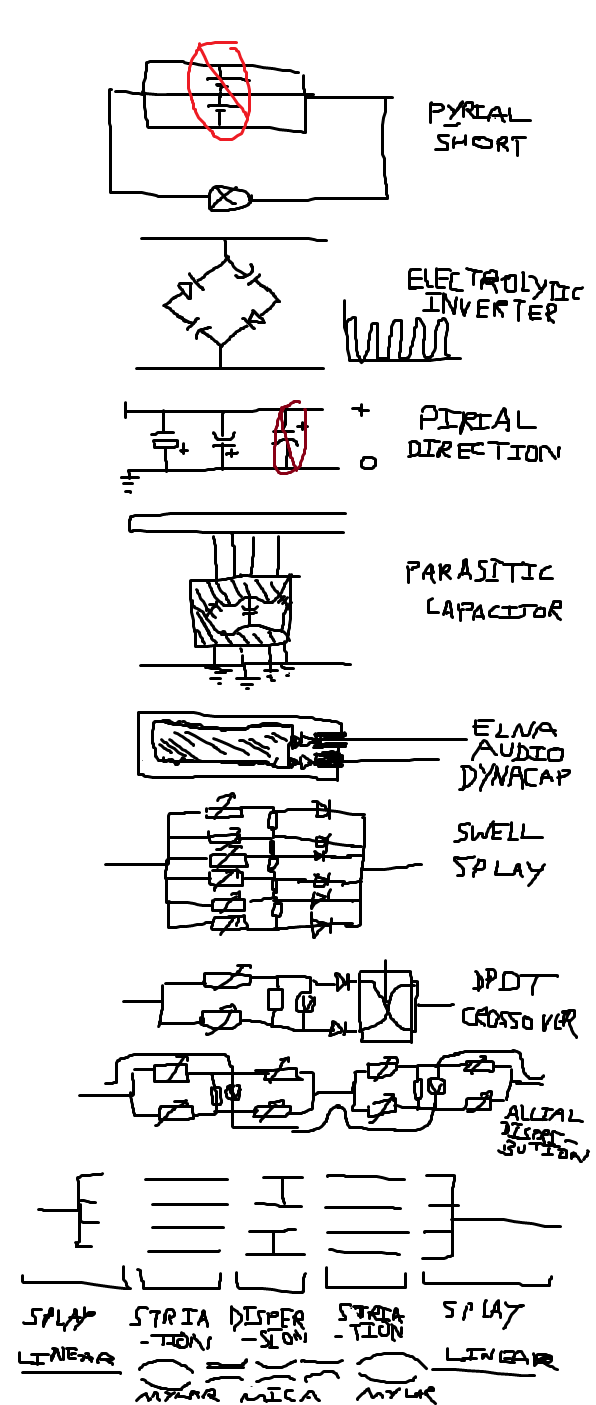 PYRIAL
SHORT
ELECTROLYTIC
INVERTER
+
PIRIAL
DIRECTION
+
+
+
O
PARASITIC
CAPACITOR
ELNA
AUDIO
DYNACAP
SWELL
SPLAY
DPDT
CROSSOVER
V
V
V
ALLIAL
DISPRI-
BUTION
SPLAY
STRIA
-TION
DISPER
-SION
STRIA
-TION
SPLAY
LINEAR
LINEAR
MYLAR
MICA
MYLAR